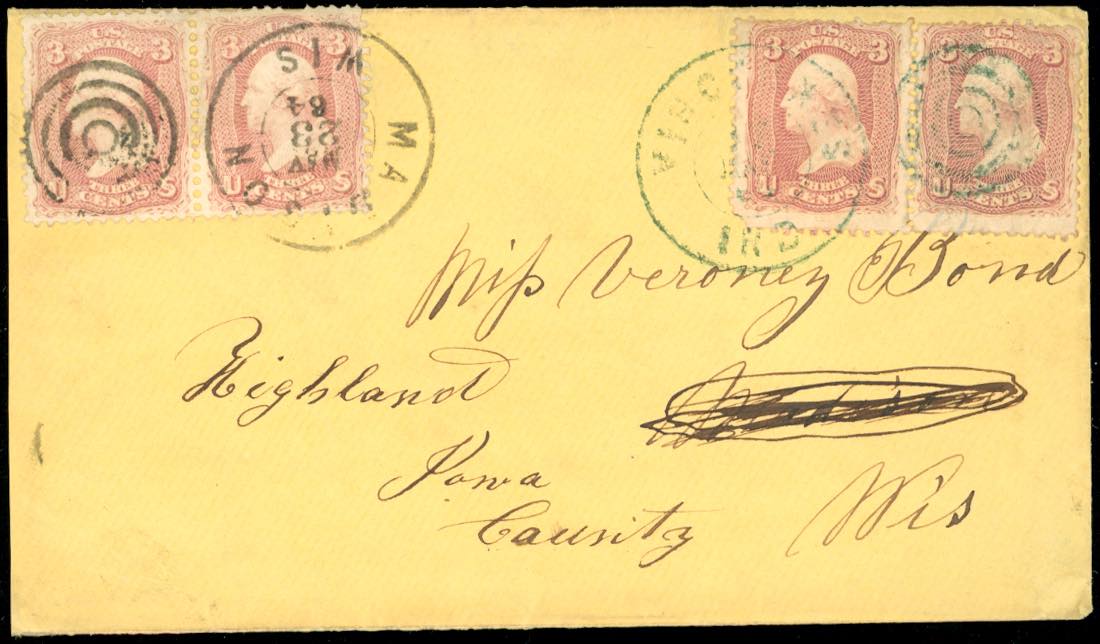 3 U.S. POSTAGE 3
U THREE CENTS S
3 U.S. POSTAGE 3
U THREE CENTS S
MADISON WIS
MAY
23
64
3 U.S. POSTAGE 3
U THREE CENTS S
3 U.S. POSTAGE 3
U THREE CENTS S
IND
Miss Veroney Bond
Highland Madison
Iowa
Counity Wis